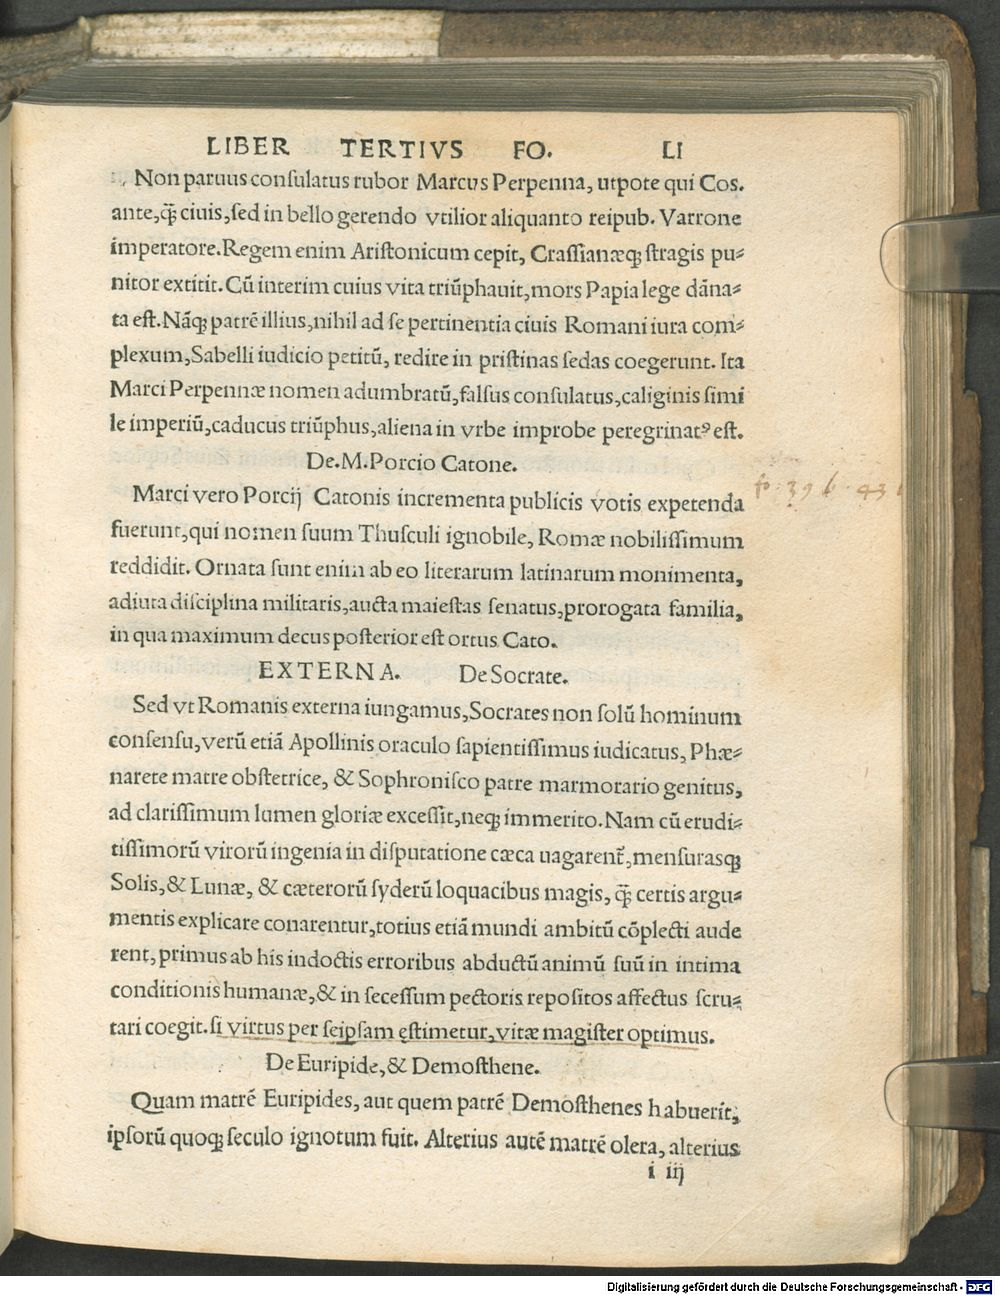 LIBER TERTIVS FO. LI
Non paruus consulatus rubor Marcus Perpenna, utpote qui Cos.
ante,q̃ ciuis,sed in bello gerendo vtilior aliquanto reipub. Varrone
imperatore.Regem enim Aristonicum cepit, Crassianæq; stragis pu⸗
nitor extitit.Cũ interim cuius vita triũphauit,mors Papia lege dãna⸗
ta est.Nãq; patrẽ illius,nihil ad se pertinentia ciuis Romani iura com⸗
plexum,Sabelli iudicio petitũ, redire in pristinas sedas coegerunt. Ita
Marci Perpennæ nomen adumbratũ,falsus consulatus,caliginis simi
le imperiũ,caducus triũphus,aliena in vrbe improbe peregrinatꝰ est.
De.M.Porcio Catone.
Marci vero Porcij Catonis incrementa publicis votis expetenda
fuerunt,qui nomen suum Thusculi ignobile, Romæ nobilissimum
reddidit. Ornata sunt enim ab eo literarum latinarum monimenta,
adiuta disciplina militaris,aucta maiestas senatus,prorogata familia,
in qua maximum decus posterior est ortus Cato.
EXTERNA. De Socrate.
Sed vt Romanis externa iungamus,Socrates non solũ hominum
consensu,verũ etiã Apollinis oraculo sapientissimus iudicatus, Phæ⸗
narete matre obstetrice, & Sophronisco patre marmorario genitus,
ad clarissimum lumen gloriæ excessit,neq; immerito.Nam cũ erudi⸗
tissimorũ virorũ ingenia in disputatione cæca uagarent̃,mensurasq;
Solis,& Lunæ, & cæterorũ syderũ loquacibus magis, q̃ certis argu⸗
mentis explicare conarentur,totius etiã mundi ambitũ cõplecti aude
rent,primus ab his indoctis erroribus abductũ animũ suũ in intima
conditionis humanæ,& in secessum pectoris repositos affectus scru⸗
tari coegit.si virtus per seipsam estimetur,vitæ magister optimus.
De Euripide,& Demosthene.
Quam matrẽ Euripides, aut quem patrẽ Demosthenes habuerit,
ipsorũ quoq; seculo ignotum fuit. Alterius autẽ matrẽ olera, alterius
i iij
Digitalisierung gefördert durch die Deutsche Forschungsgemeinschaft - DFG